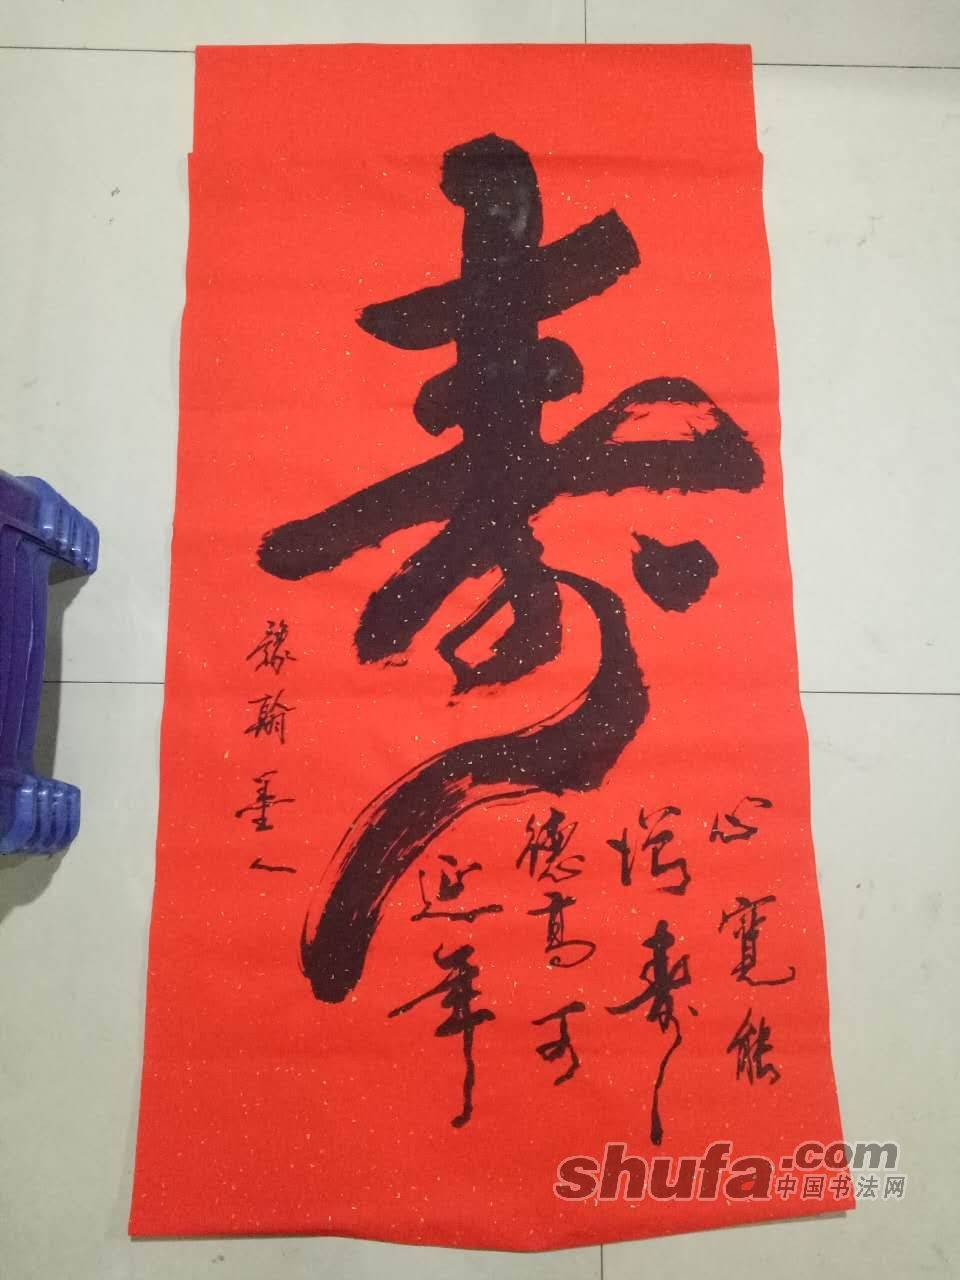 寿
心寬能
增壽
德高可
延年
豫翰墨人
shufa.com
中国书法网